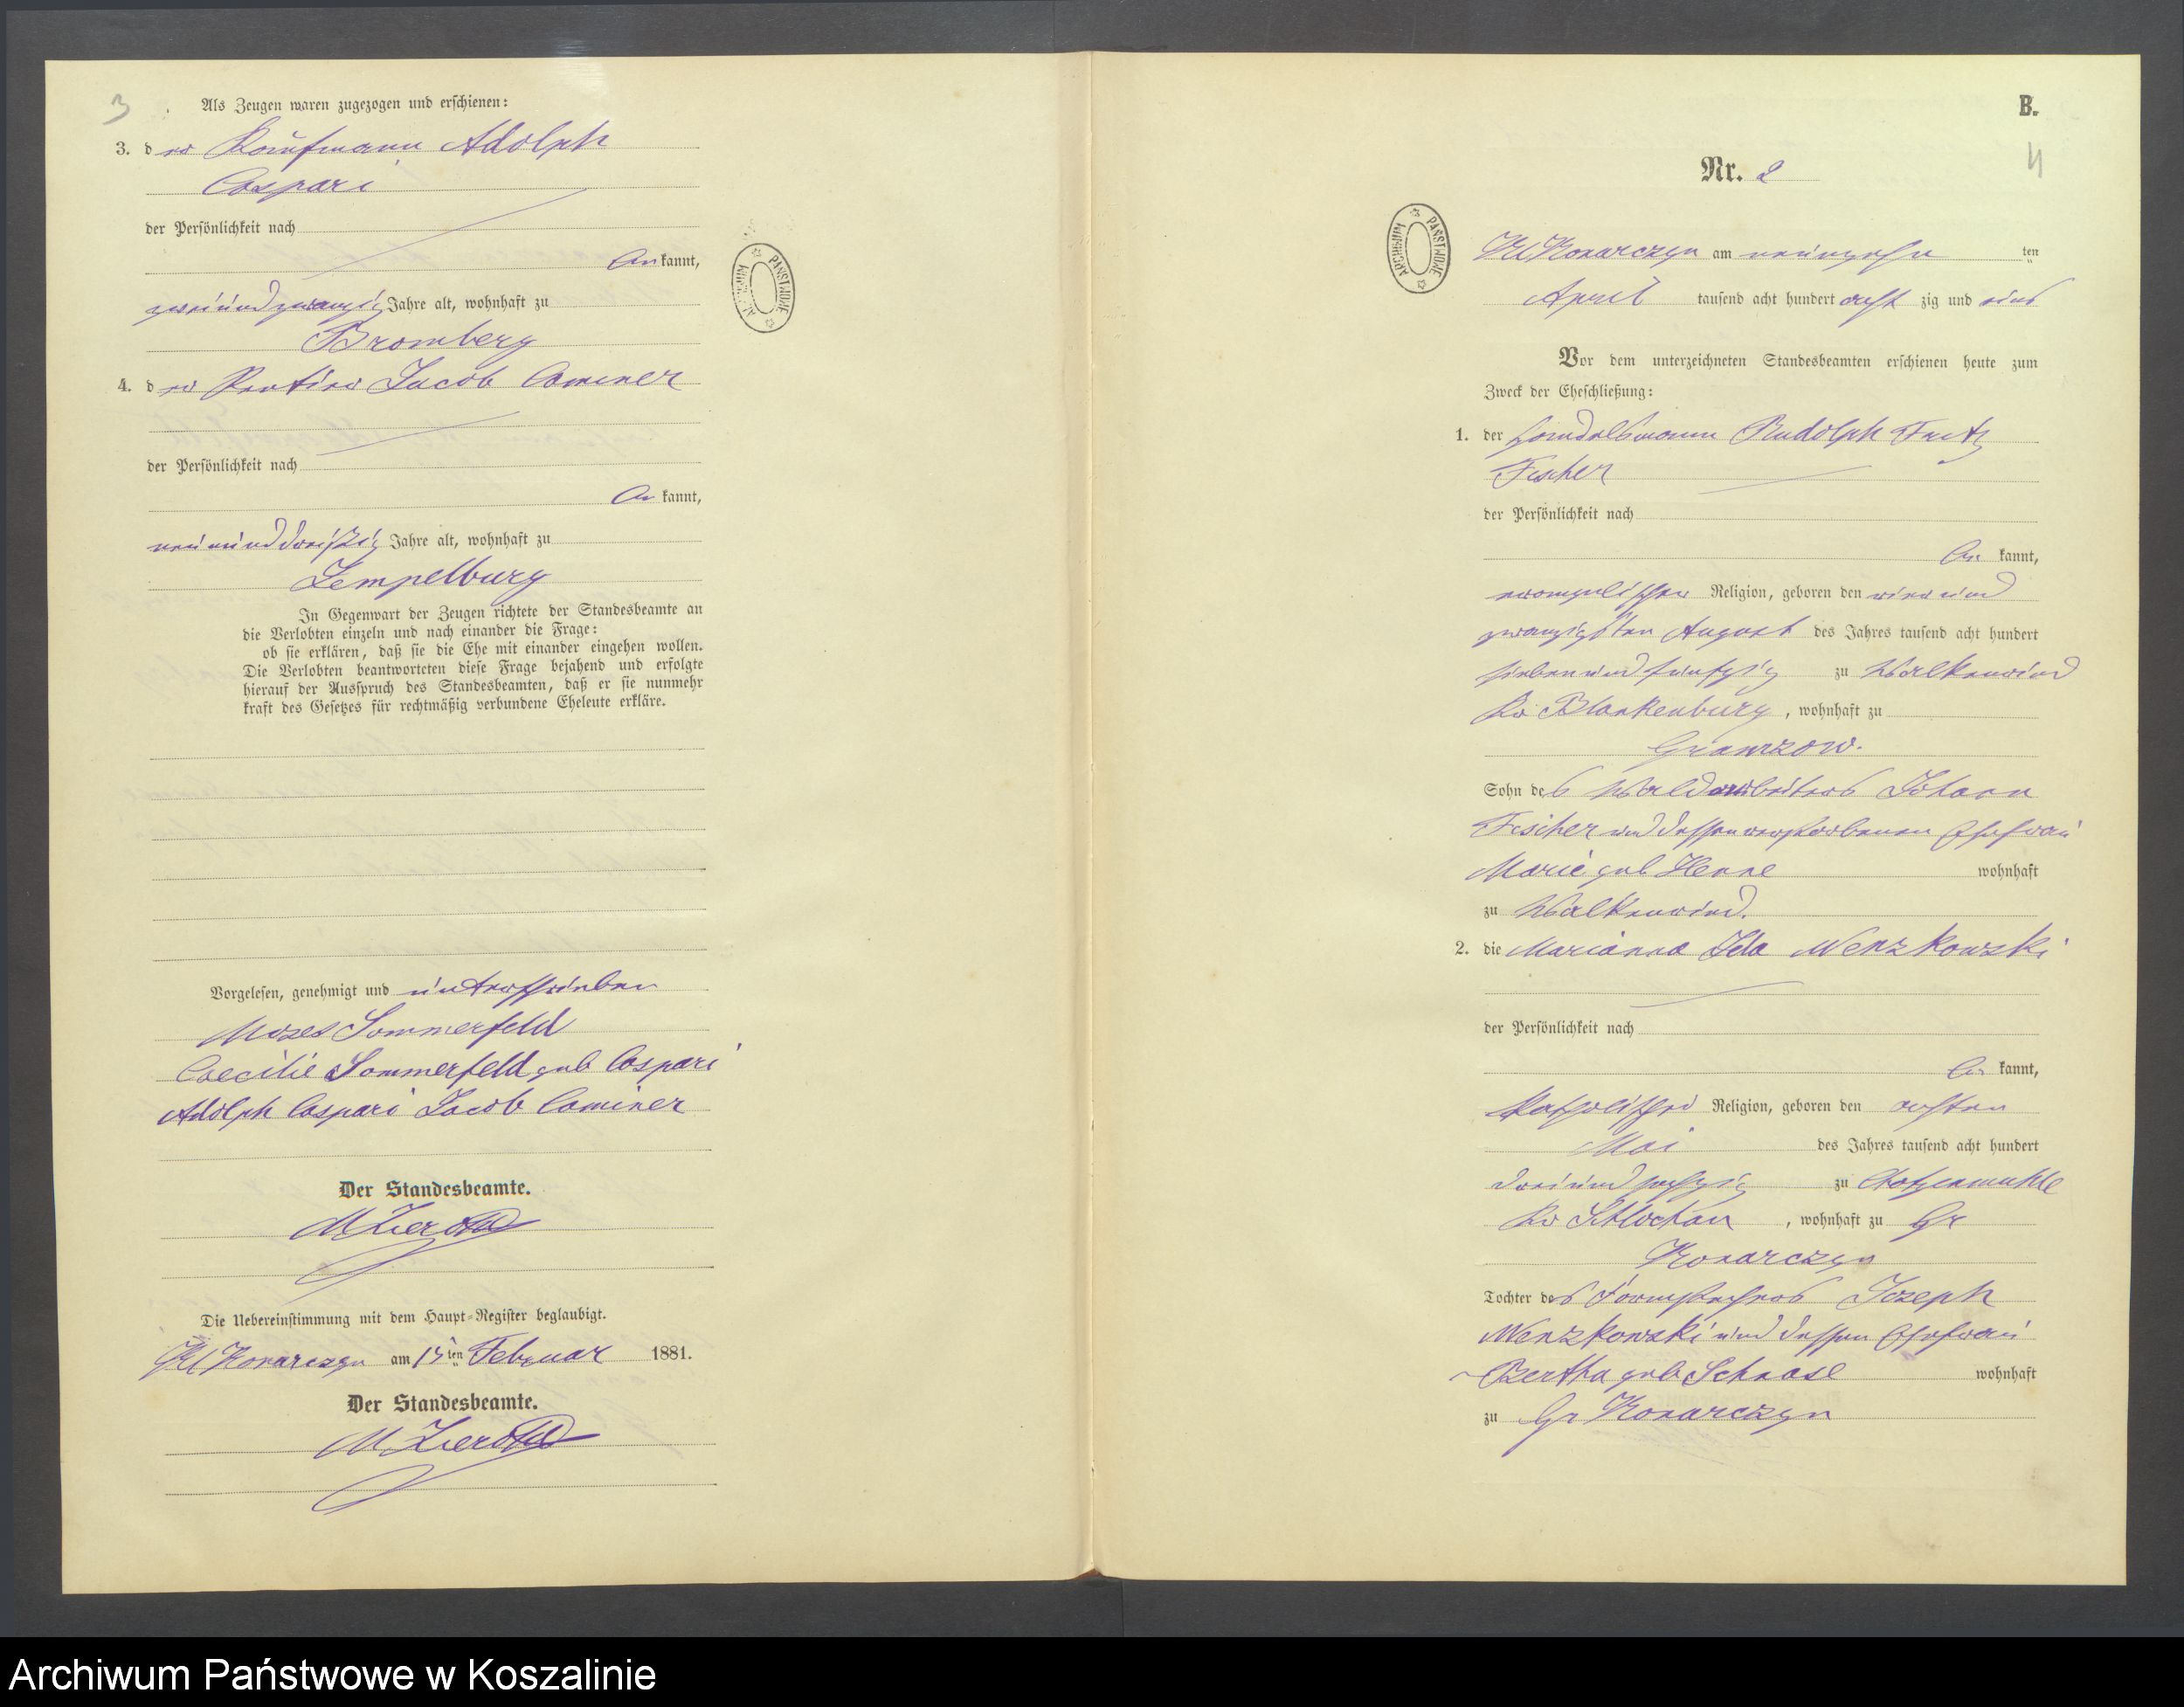 3
Als Zeugen waren zugezogen und erschienen:
3. der Kaufmann Adolph
Caspari
der Persönlichkeit nach
be kannt,
zweiundzwanzig Jahre alt, wohnhaft zu
Bromberg
4. der Rentier Jacob Caminer
der Persönlichkeit nach
be kannt,
neununddreißig Jahre alt, wohnhaft zu
Zempelburg
In Gegenwart der Zeugen richtete der Standesbeamte an
die Verlobten einzeln und nach einander die Frage:
ob sie erklären, daß sie die Ehe mit einander eingehen wollen.
Die Verlobten beantworteten diese Frage bejahend und erfolgte
hierauf der Ausspruch des Standesbeamten, daß er sie nunmehr
kraft des Gesetzes für rechtmäßig verbundene Eheleute erkläre.
Vorgelesen, genehmigt und unterschrieben
Moses Sommerfeld
Caecilie Sommerfeld geb Caspari
Adolph Caspari Jacob Caminer
Der Standesbeamte.
Die Uebereinstimmung mit dem Haupt=Register beglaubigt.
Kl Konarczyn am 15ten Februar 1881.
Der Standesbeamte.
ARCHIWUM PAŃSTWOWE
B.
4
Nr. 2
ARCHIWUM PAŃSTWOWE
Kl Konarczyn am neunzehn ten
April tausend acht hundert acht zig und eins
Vor dem unterzeichneten Standesbeamten erschienen heute zum
Zweck der Eheschließung:
1. der Handelsmann Rudolph Fritz
Fischer
der Persönlichkeit nach
be kannt,
evangelischer Religion, geboren den vierund
zwanzigsten August des Jahres tausend acht hundert
siebenundfunfzig zu Walkenried
Kr Blankenburg, wohnhaft zu
Gramzow.
Sohn des Waldarbeiters Johann
Fischer und dessen verstorbenen Ehefrau
Marie geb Henne wohnhaft
zu Walkenried.
2. die Marianna Ida Wenzkowski
der Persönlichkeit nach
be kannt,
katholischer Religion, geboren den achten
Mai des Jahres tausend acht hundert
dreiundsechszig zu
Kr Schlochau, wohnhaft zu Gr
Konarczyn
Tochter des Joseph
Wenzkowski und dessen Ehefrau
Bertha geb Schnase wohnhaft
zu Gr Konarczyn
Archiwum Państwowe w Koszalinie